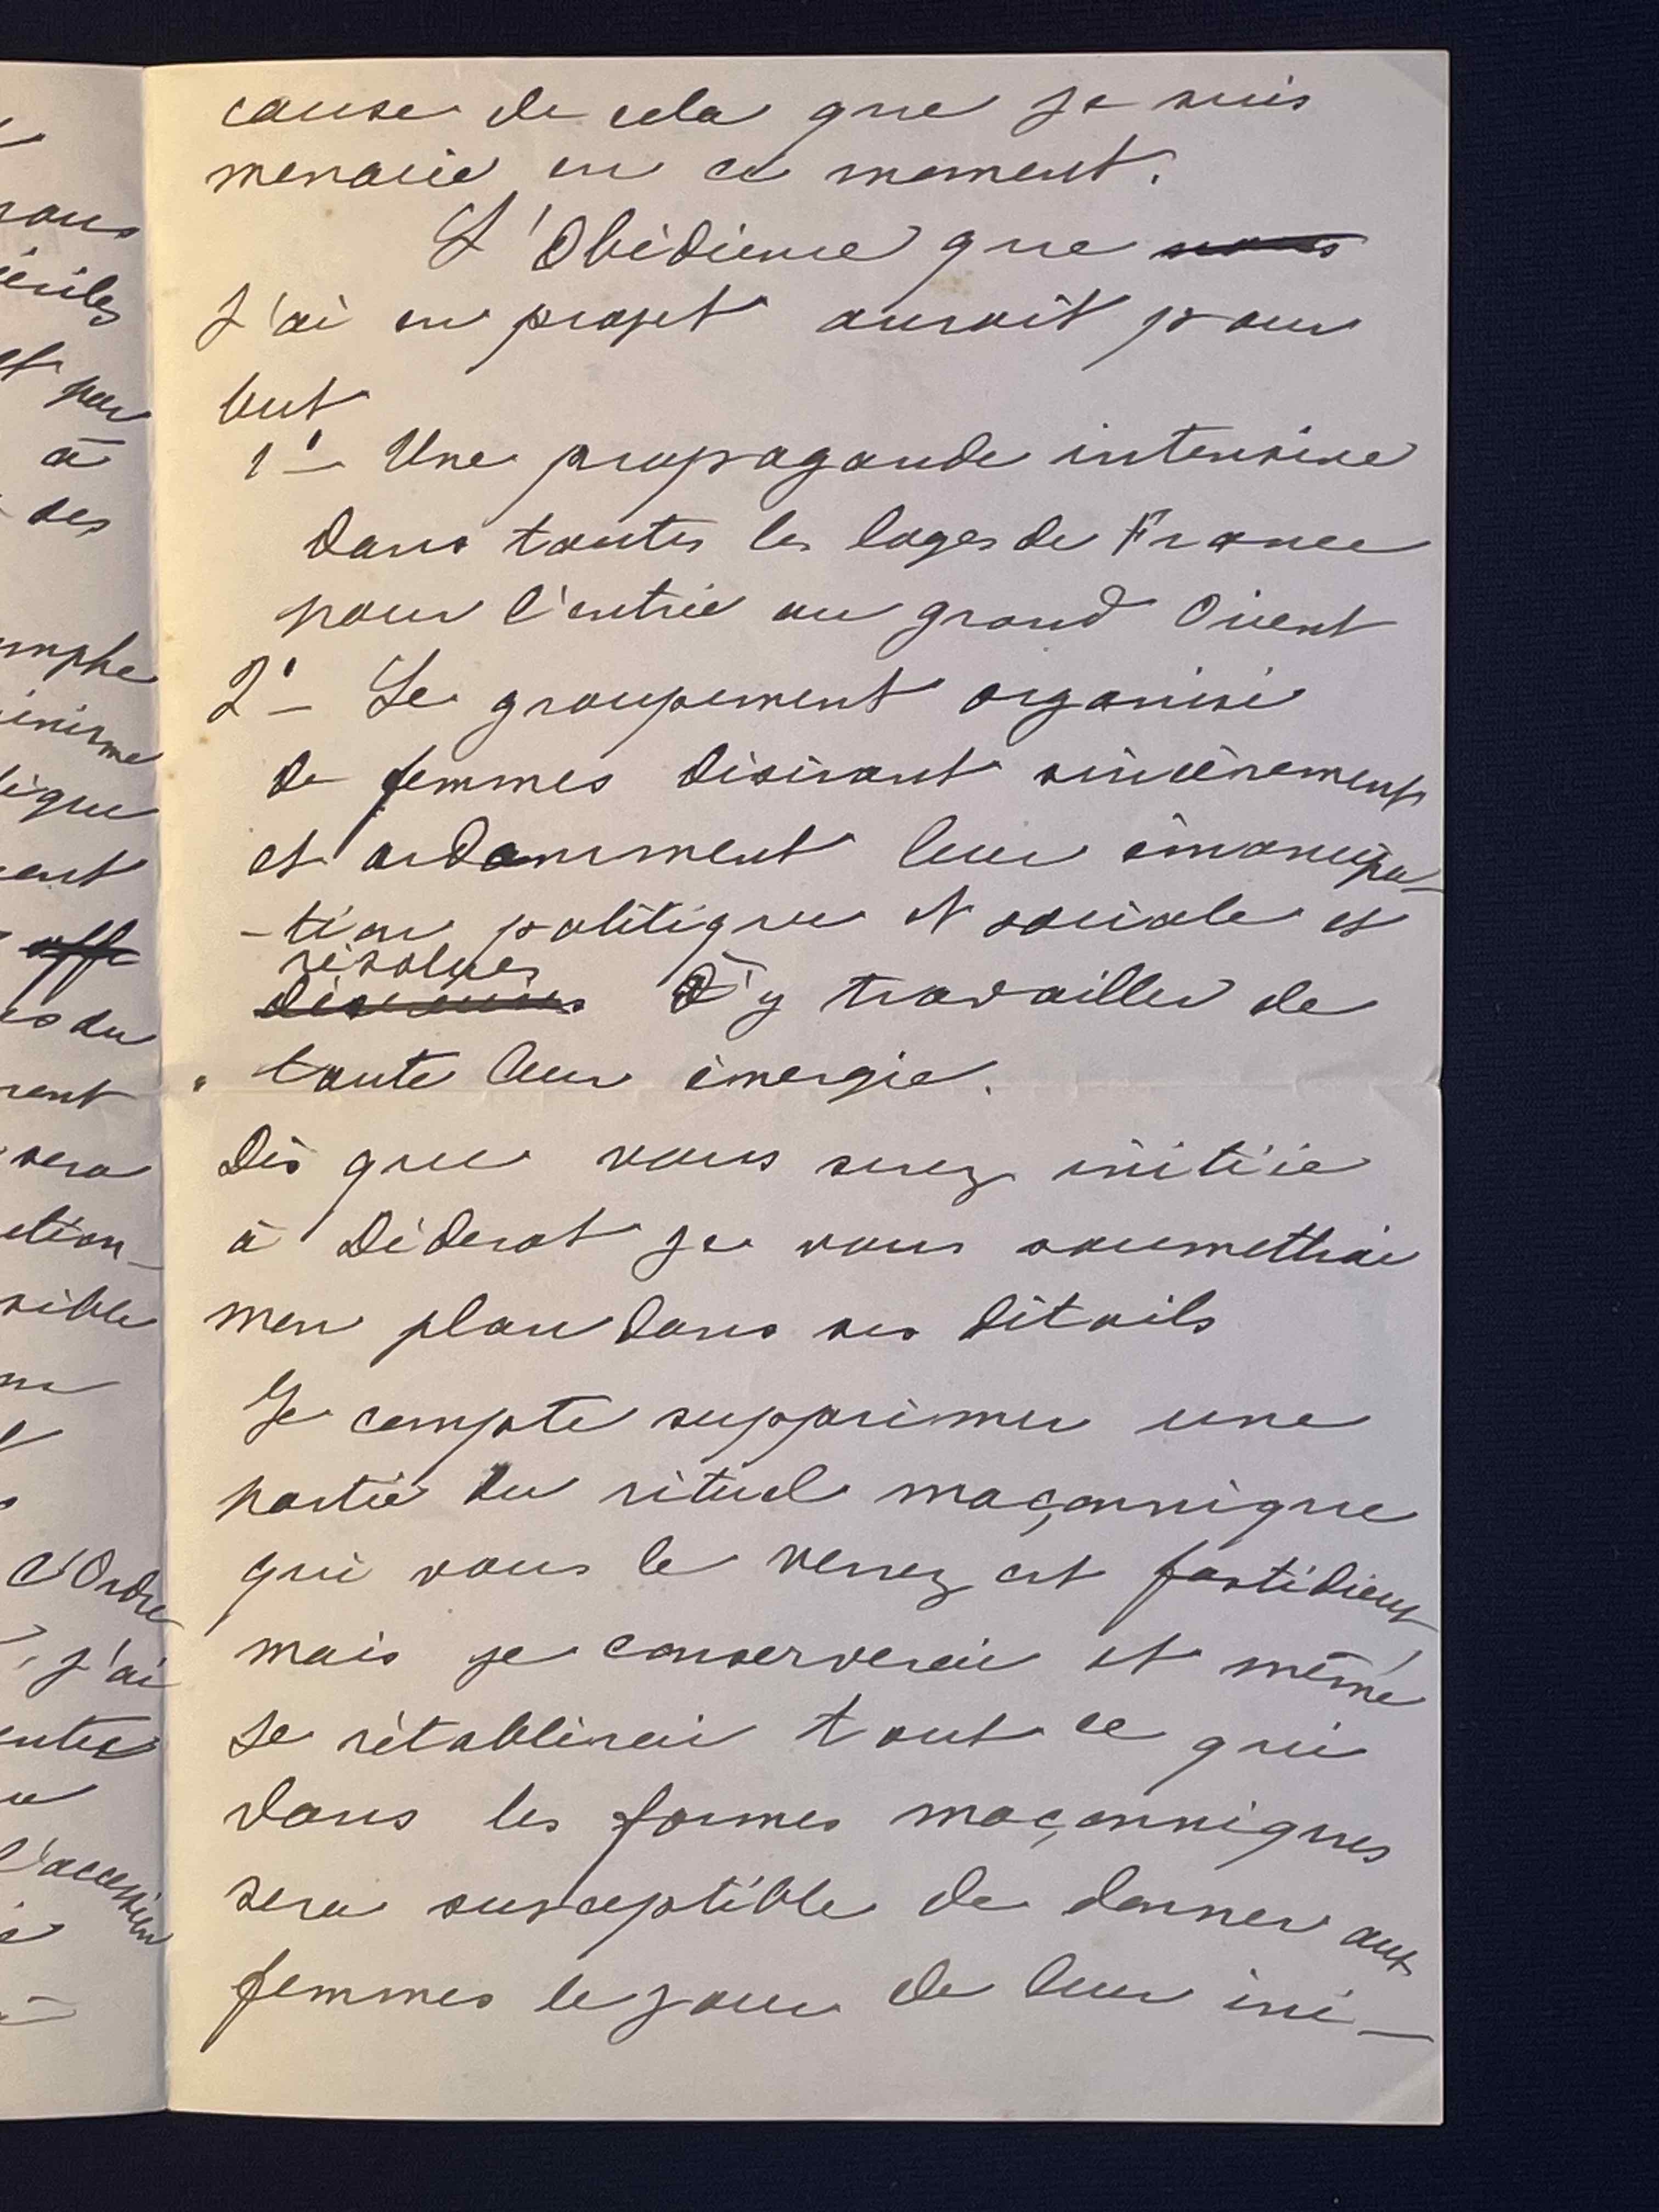 cause de cela que je suis
menacée en ce moment.
L'Obédience que ~~nous~~
j'ai en projet aurait pour
but
1° — Une propagande intensive
dans toutes les loges de France
pour l'entrée au grand Orient
2° — Le groupement organisé
de femmes désirant sincèrement
et ardemment leur émancipa-
-tion politique et sociale et
résolues
d'y travailler de
toute leur énergie.
Dès que vous serez initiée
à Diderot je vous soumettrai
mon plan dans ses détails
Je compte supprimer une
partie du rituel maçonnique
qui vous le verrez est fastidieux
mais je conserverai et même
je rétablirai tout ce qui
dans les formes maçonniques
sera susceptible de donner aux
femmes le jour de leur ini-
rous
et pour
à
des
omphe
inisme
ique
ent
~~affe~~
es du
rent
sera
ction-
sible
l'Ordre
, j'ai
entes
l'accession